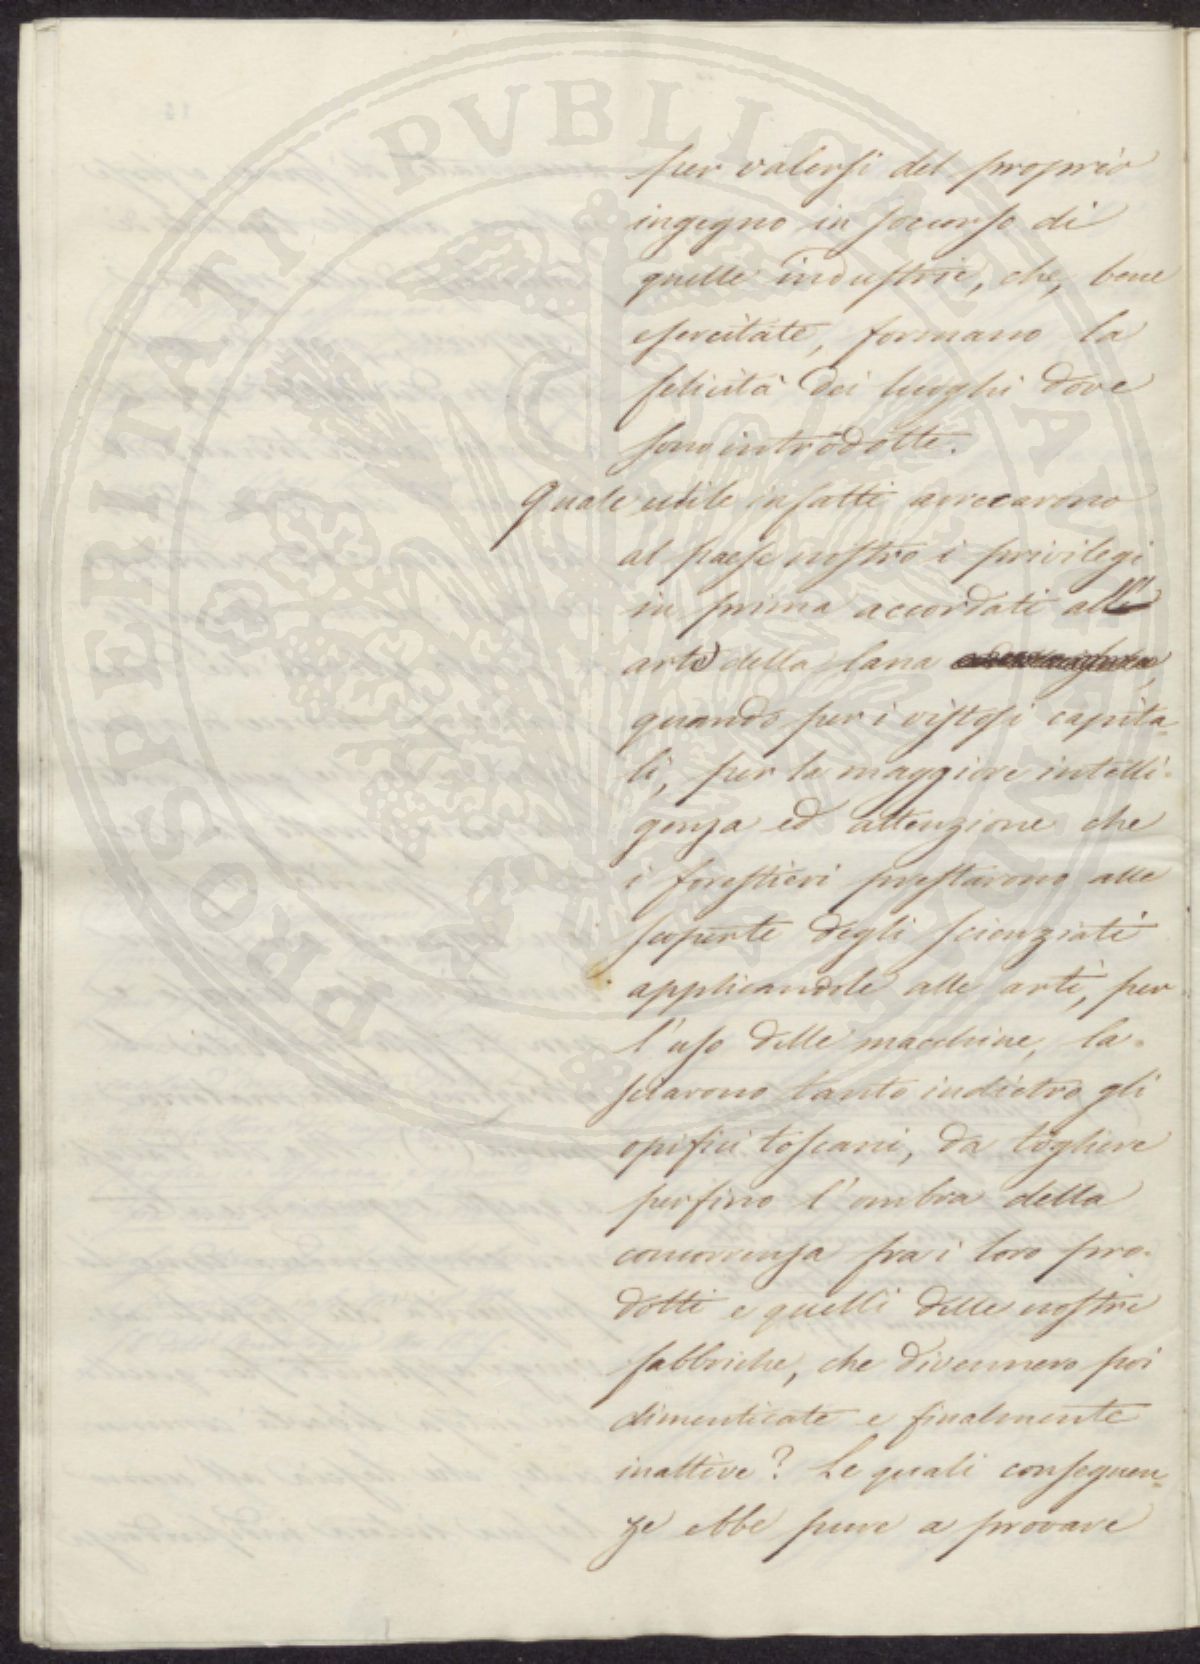 PROSPERITATI PVBLICAE AVGENDAE
per valersi del proprio
ingegno in soccorso di
quelle industrie, che, bene
esercitate, formano la
felicità dei luoghi dove
sono introdotte.
Quale utile infatti arrecarono
al paese nostro i privilegi
in prima accordati all'
arte della lana
quando per i vistosi capita-
li, per la maggiore intelli-
genza ed attenzione che
i forestieri prestarono alle
scoperte degli scienziati
applicandole alle arti, per
l'uso delle macchine, la-
sciarono tanto indietro gli
opifici toscani, da togliere
perfino l'ombra della
concorrenza fra i loro pro-
dotti e quelli delle nostre
fabbriche, che divennero poi
dimenticate e finalmente
inattive? Le quali conseguen-
ze ebbe pure a provare